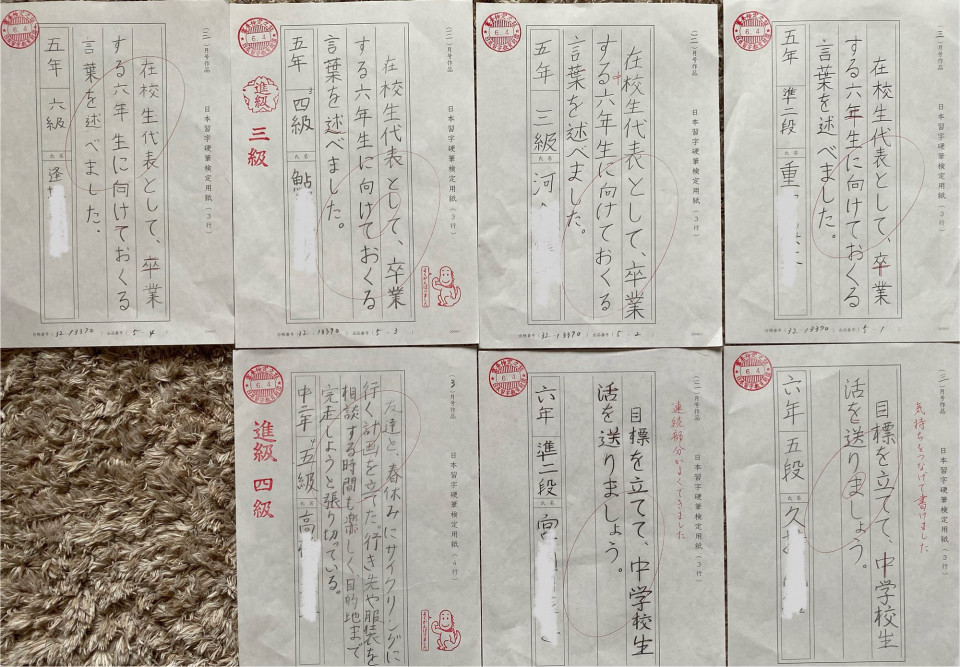 (三)月号作品
日本習字硬筆検定用紙(3行)
在校生代表として、卒業
する六年生に向けておくる
言葉を述べました。
五年 六級
氏名
逢
6.4
出品番号 5-4
(三)月号作品
日本習字硬筆検定用紙(3行)
在校生代表として、卒業
する六年生に向けておくる
言葉を述べました。
五年 四級
氏名
鮎
6.4
進級
三級
32-13390
出品番号 5-3
(三)月号作品
日本習字硬筆検定用紙(3行)
在校生代表として、卒業
する六年生に向けておくる
言葉を述べました。
五年 三級
氏名
河
6.4
32-13390
出品番号 5-2
(三)月号作品
日本習字硬筆検定用紙(3行)
在校生代表として、卒業
する六年生に向けておくる
言葉を述べました。
五年 準二段
氏名
重
6.4
32-13390
出品番号 5-1
(3)月号作品
日本習字硬筆検定用紙(4行)
友達と、春休みにサイクリングに
行く計画を立てた。行き先や服装を
相談する時間も楽しく目的地まで
完走しようと張り切っている。
中二年 五級
氏名
高
6.4
進級 四級
(三)月号作品
日本習字硬筆検定用紙(3行)
連続部分がよくできました
目標を立てて、中学校生
活を送りましょう。
六年 準二段
氏名
6.4
(三)月号作品
日本習字硬筆検定用紙(3行)
気持ちをつなげて書けました
目標を立てて、中学校生
活を送りましょう。
六年 五段
氏名
久
6.4